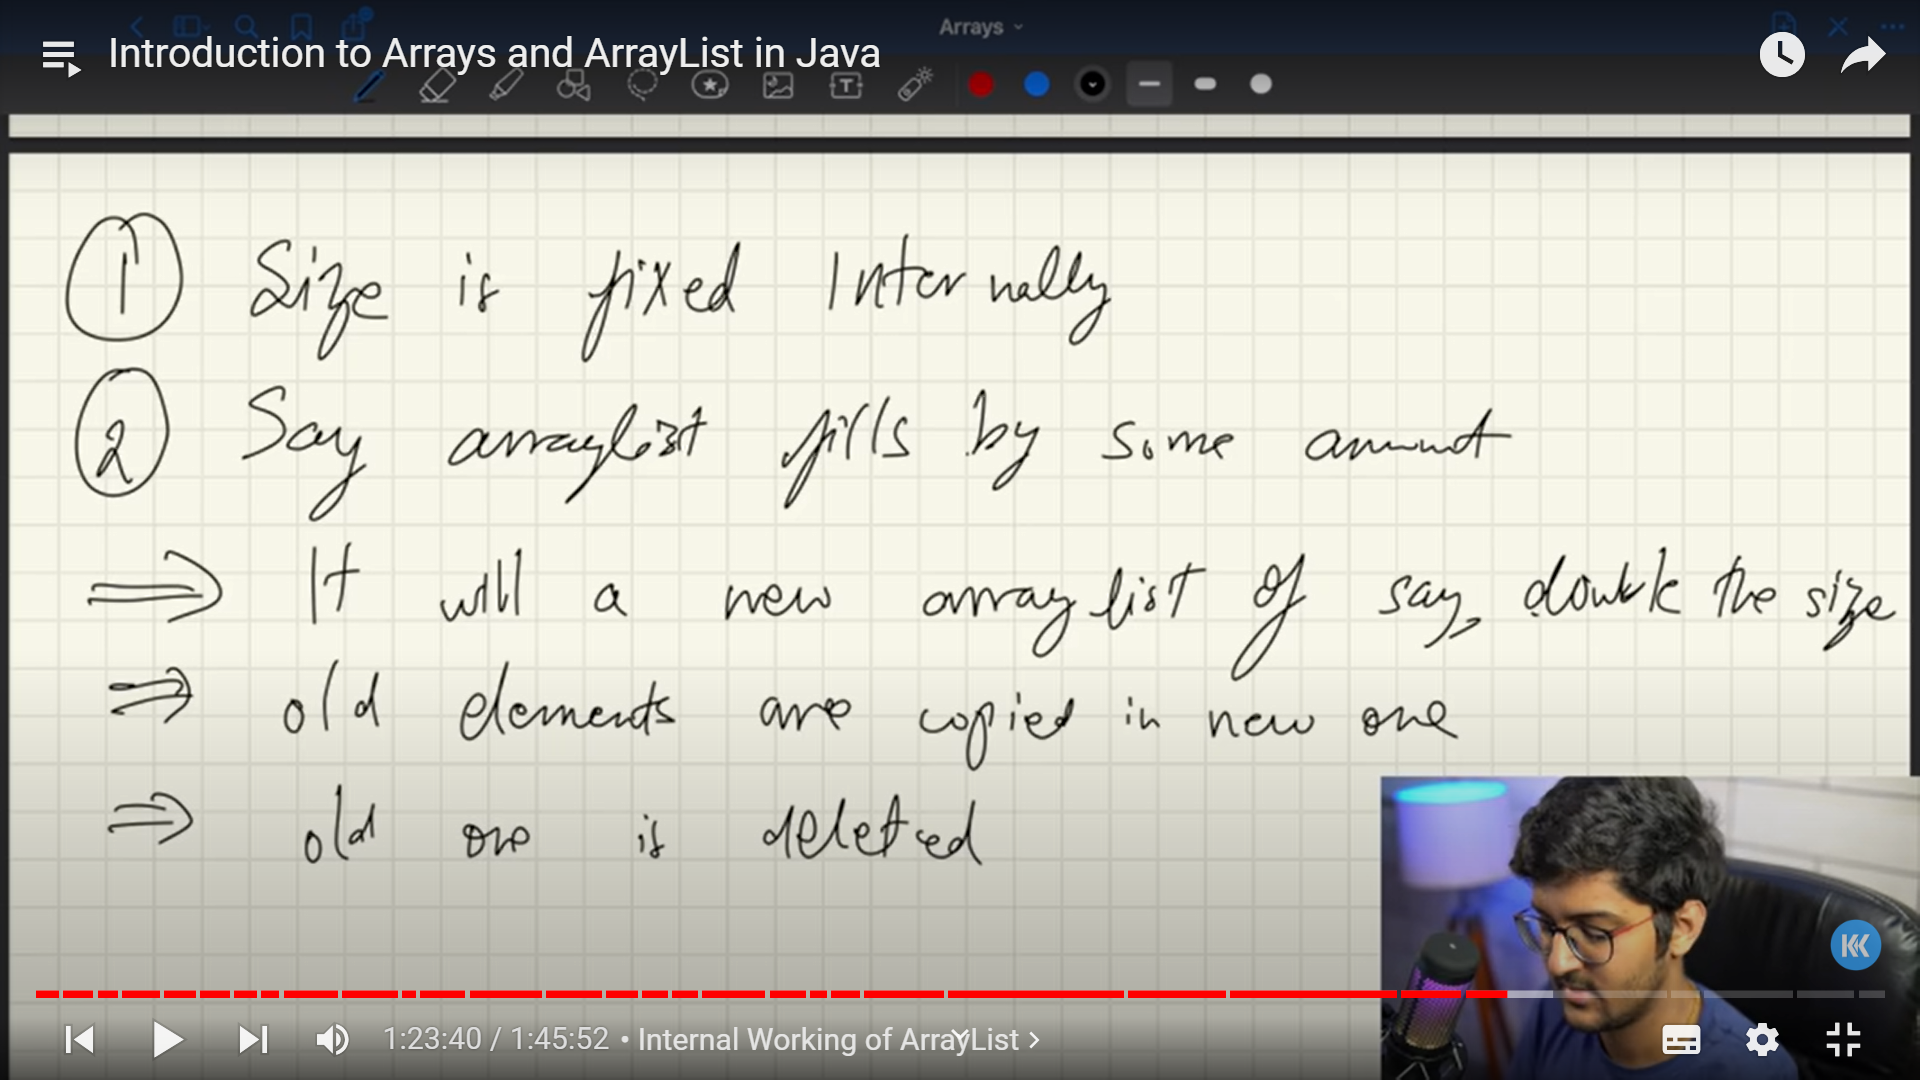 Arrays
Introduction to Arrays and ArrayList in Java
1 Size is fixed Internally
2 Say arraylist fills by some amount
⇒ It will a new arraylist of say, double the size
⇒ old elements are copied in new one
⇒ old one is deleted
1:23:40 / 1:45:52 • Internal Working of ArrayList